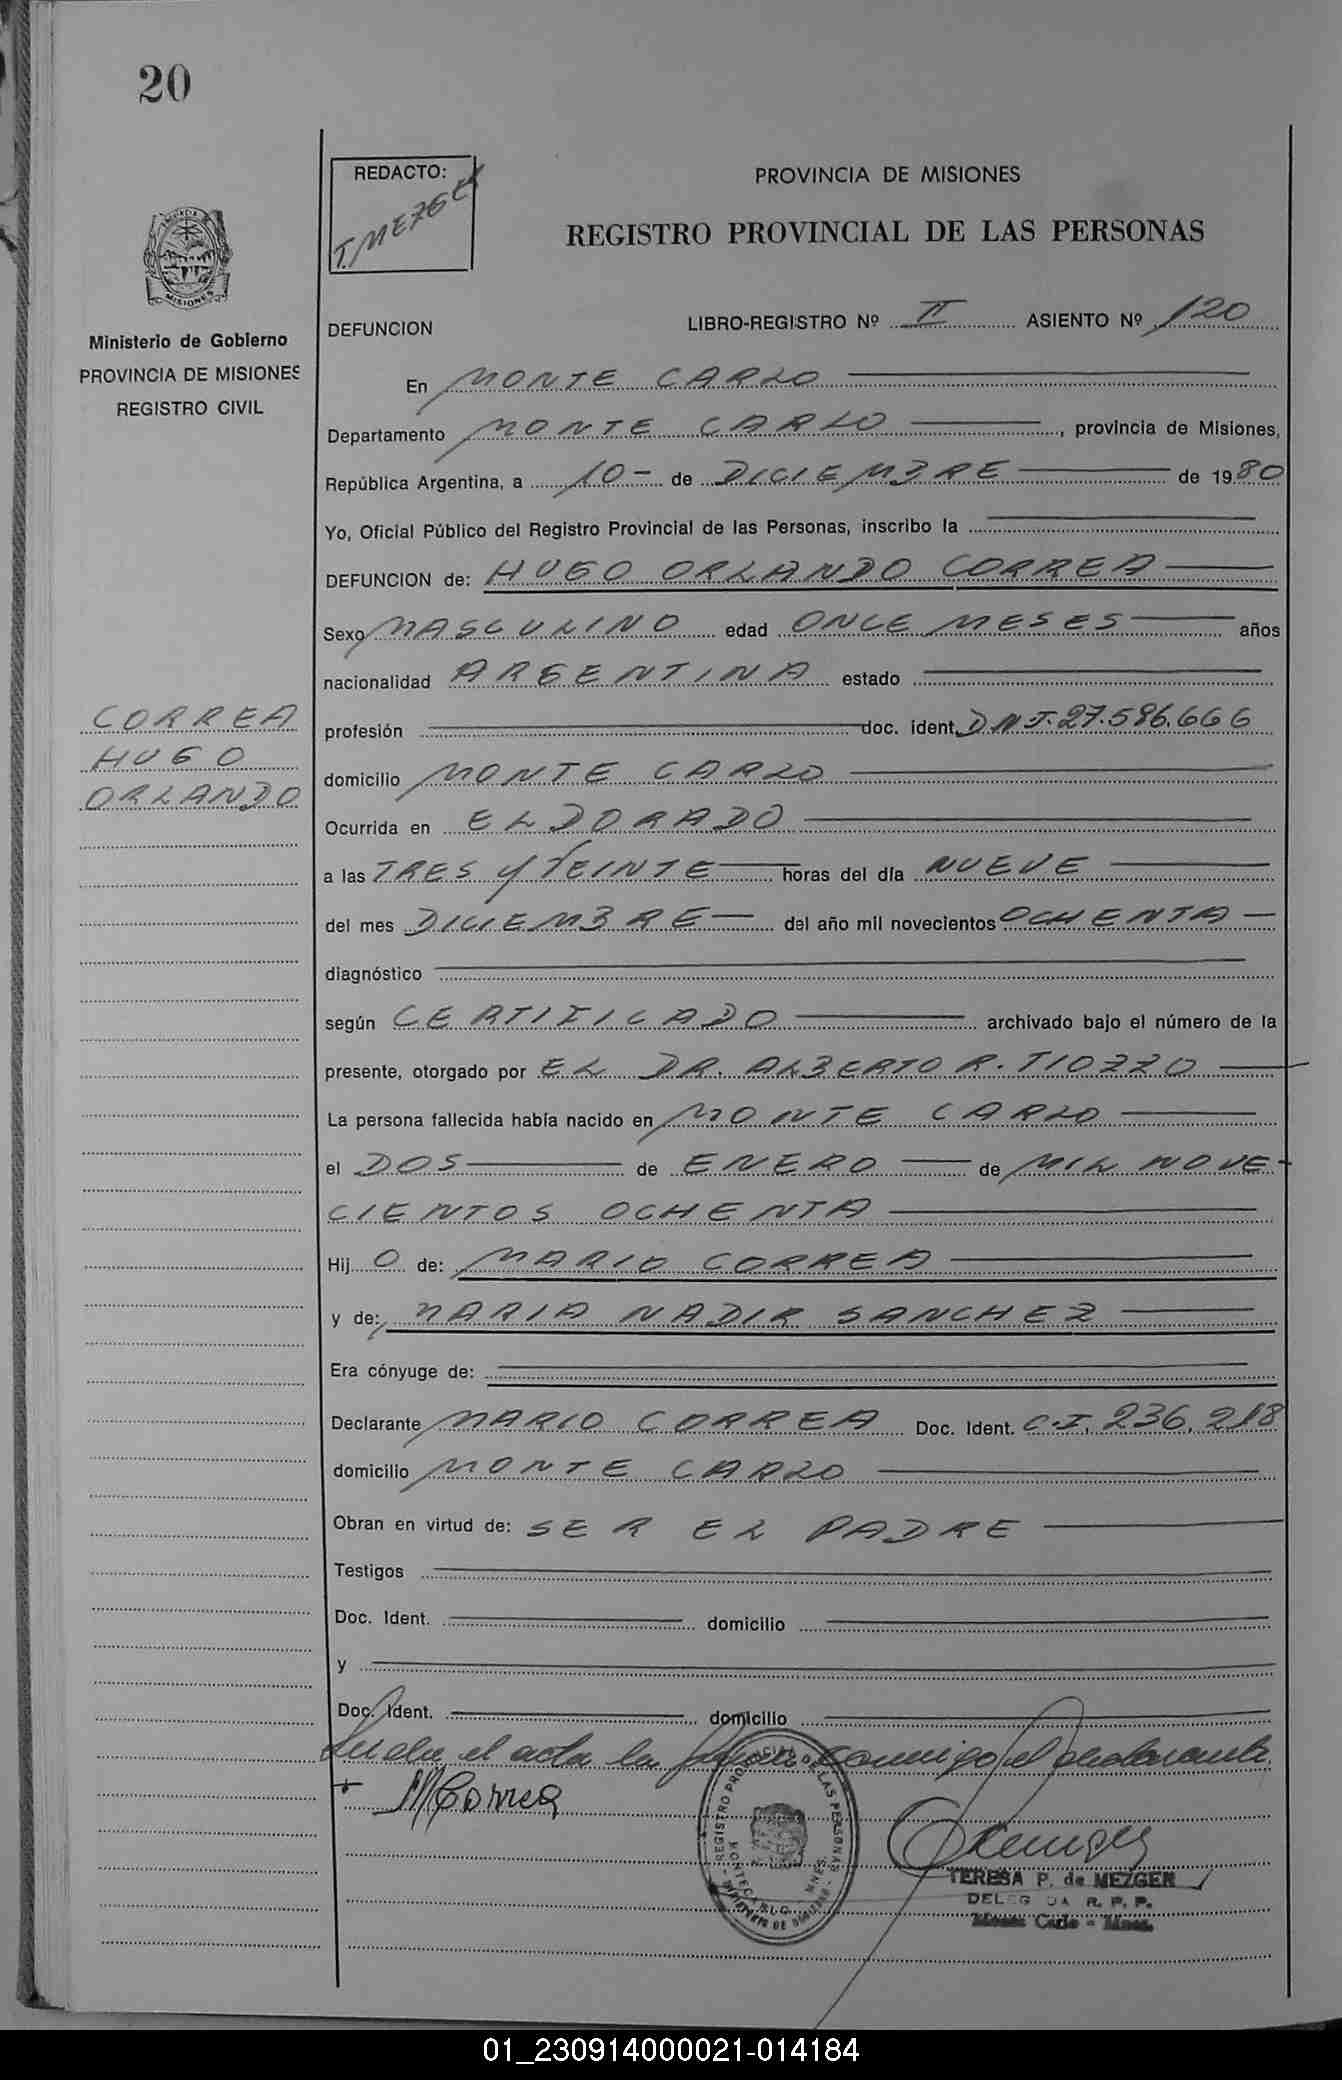 20
REDACTO:
T. MEZGER
PROVINCIA DE MISIONES
REGISTRO PROVINCIAL DE LAS PERSONAS
MISIONES
Ministerio de Gobierno
PROVINCIA DE MISIONES
REGISTRO CIVIL
DEFUNCION LIBRO-REGISTRO Nº II ASIENTO Nº 120
En MONTE CARLO
Departamento MONTE CARLO, provincia de Misiones,
República Argentina, a 10- de DICIEMBRE de 1980
Yo, Oficial Público del Registro Provincial de las Personas, inscribo la
DEFUNCION de: HUGO ORLANDO CORREA
Sexo MASCULINO edad ONCE MESES años
nacionalidad ARGENTINA estado
CORREA
HUGO
ORLANDO
profesión doc. ident. D.N.I. 27.596.666
domicilio MONTE CARLO
Ocurrida en ELDORADO
a las TRES y VEINTE horas del día NUEVE
del mes DICIEMBRE del año mil novecientos OCHENTA
diagnóstico
según CERTIFICADO archivado bajo el número de la
presente, otorgado por EL DR. ALBERTO R. TIOZZO
La persona fallecida había nacido en MONTE CARLO
el DOS de ENERO de MIL NOVE-
CIENTOS OCHENTA
Hij O de: MARIO CORREA
y de: MARIA NADIR SANCHEZ
Era cónyuge de:
Declarante MARIO CORREA Doc. Ident. C.I. 236.218
domicilio MONTE CARLO
Obran en virtud de: SER EL PADRE
Testigos
Doc. Ident. domicilio
y
Doc. Ident. domicilio
el acta la firma conmigo el declarante.
M Correa
REGISTRO PROVINCIAL DE LAS PERSONAS
MONTECARLO - MNES.
TERESA P. de MEZGER
DELEGADA R. P. P.
Monte Carlo - Mnes.
01_230914000021-014184